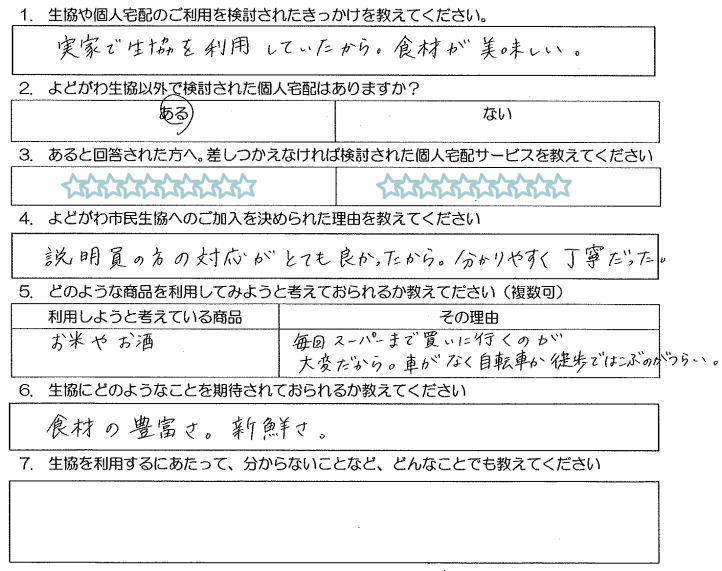 1. 生協や個人宅配のご利用を検討されたきっかけを教えてください。
実家で生協を利用していたから。食材が美味しい。
2. よどがわ生協以外で検討された個人宅配はありますか？
ある ない
3. あると回答された方へ。差しつかえなければ検討された個人宅配サービスを教えてください
4. よどがわ市民生協へのご加入を決められた理由を教えてください
説明員の方の対応がとても良かったから。分かりやすく丁寧だった。
5. どのような商品を利用してみようと考えておられるか教えてださい（複数可）
利用しようと考えている商品 その理由
お米やお酒 毎回スーパーまで買いに行くのが
大変だから。車がなく自転車か徒歩ではこぶのがつらい。
6. 生協にどのようなことを期待されておられるか教えてください
食材の豊富さ。新鮮さ。
7. 生協を利用するにあたって、分からないことなど、どんなことでも教えてください